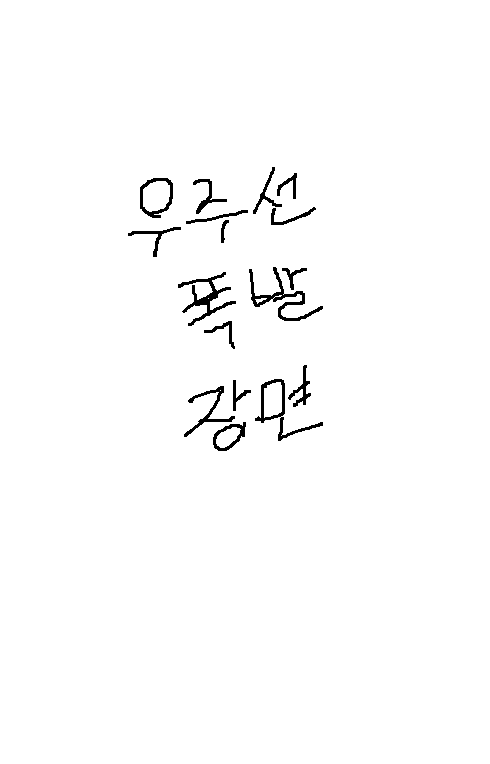 우주선
폭발
장면